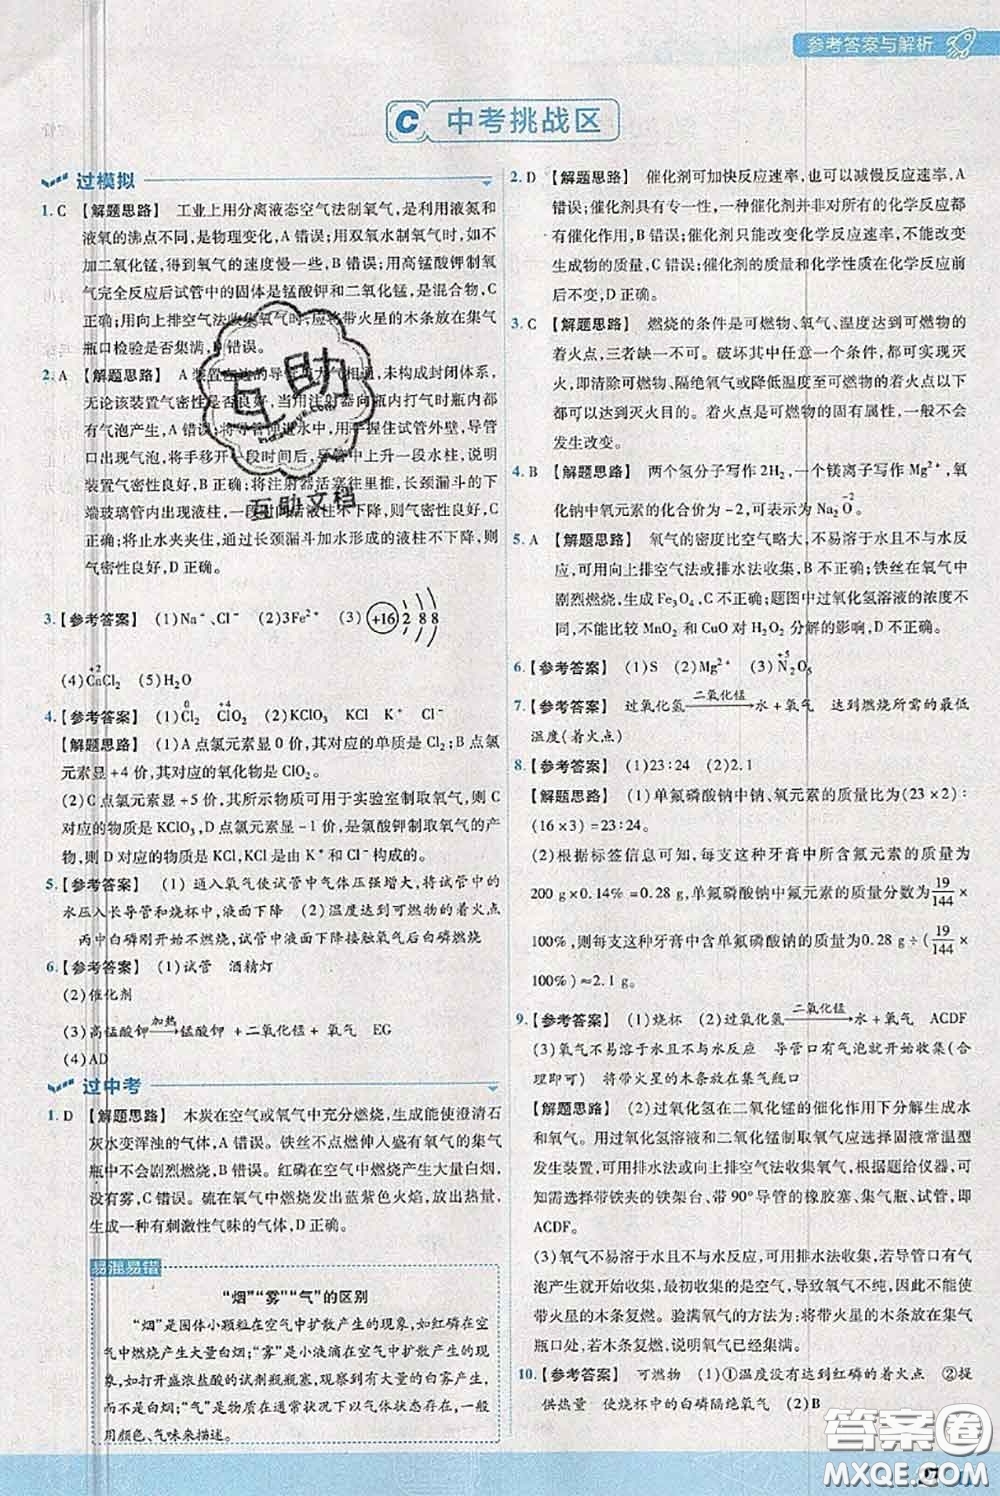 参考答案与解析
C 中考挑战区
过模拟
1. C 【解题思路】 工业上用分离液态空气法制氧气,是利用液氮和
液氧的沸点不同,是物理变化,A错误;用双氧水制氧气时,如不
加二氧化锰,得到氧气的速度慢一些,B错误;用高锰酸钾制氧
气完全反应后试管中的固体是锰酸钾和二氧化锰,是混合物,C
正确;用向上排空气法收集氧气时,应将带火星的木条放在集气
瓶口检验是否集满,D错误。
2. A 【解题思路】 A装置右边的导管与大气相通,未构成封闭体系,
无论该装置气密性是否良好,当用注射器向瓶内打气时瓶内都
有气泡产生,A错误;将导管伸进水中,用手握住试管外壁,导管
口出现气泡,将手移开一段时间后,导管中上升一段水柱,说明
装置气密性良好,B正确;将注射器活塞往里推,长颈漏斗的下
端玻璃管内出现液柱,且一段时间内液柱不下降,气密性良好,C
正确;将止水夹夹住,通过长颈漏斗加水形成的液柱不下降,则
气密性良好,D正确。
3. 【参考答案】 (1)Na⁺、Cl⁻ (2)3Fe²⁺ (3) +16 2 8 8
(4)CaCl₂ +2 (5)H₂O
4. 【参考答案】 (1)Cl₂ 0 ClO₂ +4 (2)KClO₃ KCl K⁺ Cl⁻
【解题思路】 (1)A点氯元素显0价,其对应的单质是Cl₂;B点氯
元素显+4价,其对应的氧化物是ClO₂。
(2)C点氯元素显+5价,其对应的物质可用于实验室制取氧气,则C
对应的物质是KClO₃,D点氯元素显-1价,是氯酸钾制取氧气的产
物,则D对应的物质是KCl,KCl是由K⁺和Cl⁻构成的。
5. 【参考答案】 (1)通入氧气使试管中气体压强增大,将试管中的
水压入长导管和烧杯中,液面下降 (2)温度达到可燃物的着火点
丙中白磷刚开始不燃烧,试管中液面下降接触氧气后白磷燃烧
6. 【参考答案】 (1)试管 酒精灯
(2)催化剂
(3)高锰酸钾 —加热→ 锰酸钾+二氧化锰+氧气 EG
(4)AD
过中考
1. D 【解题思路】 木炭在空气或氧气中充分燃烧,生成能使澄清石
灰水变浑浊的气体,A错误。铁丝不点燃伸入盛有氧气的集气
瓶中不会剧烈燃烧,B错误。红磷在空气中燃烧产生大量白烟,
没有雾,C错误。硫在氧气中燃烧发出蓝紫色火焰,放出热量,
生成一种有刺激性气味的气体,D正确。
易混易错
“烟”“雾”“气”的区别
“烟”是固体小颗粒在空气中扩散产生的现象,如红磷在空
气中燃烧产生大量白烟;“雾”是小液滴在空气中扩散产生的现
象,如打开盛浓盐酸的试剂瓶瓶塞,观察到有大量的白雾产生,
而不是白烟;“气”是物质在通常状况下以气体的形式存在,一般
用颜色、气味来描述。
2. D 【解题思路】 催化剂可加快反应速率,也可以减慢反应速率,A
错误;催化剂具有专一性,一种催化剂并非对所有的化学反应都
有催化作用,B错误;催化剂只能改变化学反应速率,不能改变
生成物的质量,C错误;催化剂的质量和化学性质在化学反应前
后不变,D正确。
3. C 【解题思路】 燃烧的条件是可燃物、氧气、温度达到可燃物的
着火点,三者缺一不可。破坏其中任意一个条件,都可实现灭
火,即清除可燃物、隔绝氧气或降低温度至可燃物的着火点以下
都可以达到灭火目的。着火点是可燃物的固有属性,一般不会
发生改变。
4. B 【解题思路】 两个氢分子写作2H₂,一个镁离子写作Mg²⁺,氧
化钠中氧元素的化合价为-2,可表示为Na₂O -2。
5. A 【解题思路】 氧气的密度比空气略大、不易溶于水且不与水反
应,可用向上排空气法或排水法收集,B不正确;铁丝在氧气中
剧烈燃烧,生成Fe₃O₄,C不正确;题图中过氧化氢溶液的浓度不
同,不能比较MnO₂和CuO对H₂O₂分解的影响,D不正确。
6. 【参考答案】 (1)S (2)Mg²⁺ (3)N₂O₅ +5
7. 【参考答案】 过氧化氢 —二氧化锰→ 水+氧气 达到燃烧所需的最低
温度(着火点)
8. 【参考答案】 (1)23:24 (2)2.1
【解题思路】 (1)单氟磷酸钠中钠、氧元素的质量比为(23×2):
(16×3)=23:24。
(2)根据标签信息可知,每支这种牙膏中所含氟元素的质量为
200 g×0.14%=0.28 g,单氟磷酸钠中氟元素的质量分数为19/144×
100%,则每支这种牙膏中含单氟磷酸钠的质量为0.28 g÷(19/144×
100%)≈2.1 g。
9. 【参考答案】 (1)烧杯 (2)过氧化氢 —二氧化锰→ 水+氧气 ACDF
(3)氧气不易溶于水且不与水反应 导管口有气泡就开始收集(合
理即可) 将带火星的木条放在集气瓶口
【解题思路】 (2)过氧化氢在二氧化锰的催化作用下分解生成水
和氧气。用过氧化氢溶液和二氧化锰制取氧气应选择固液常温型
发生装置,氧气可用排水法或向上排空气法收集,根据题给仪器,可
选择带铁夹的铁架台、带90°导管的橡胶塞、集气瓶、试管,即
ACDF。
(3)氧气不易溶于水且不与水反应,可用排水法收集,若导管口有气
泡产生就开始收集,最初收集的是空气,导致氧气不纯,因此不能使
带火星的木条复燃。验满氧气的方法为:将带火星的木条放在集气
瓶口处,若木条复燃,说明氧气已经集满。
10. 【参考答案】 可燃物 (1)①温度没有达到红磷的着火点 ②提
供热量 使烧杯中的白磷隔绝氧气 (2)B
互助
互助文档
答案圈
MXQE.COM
27